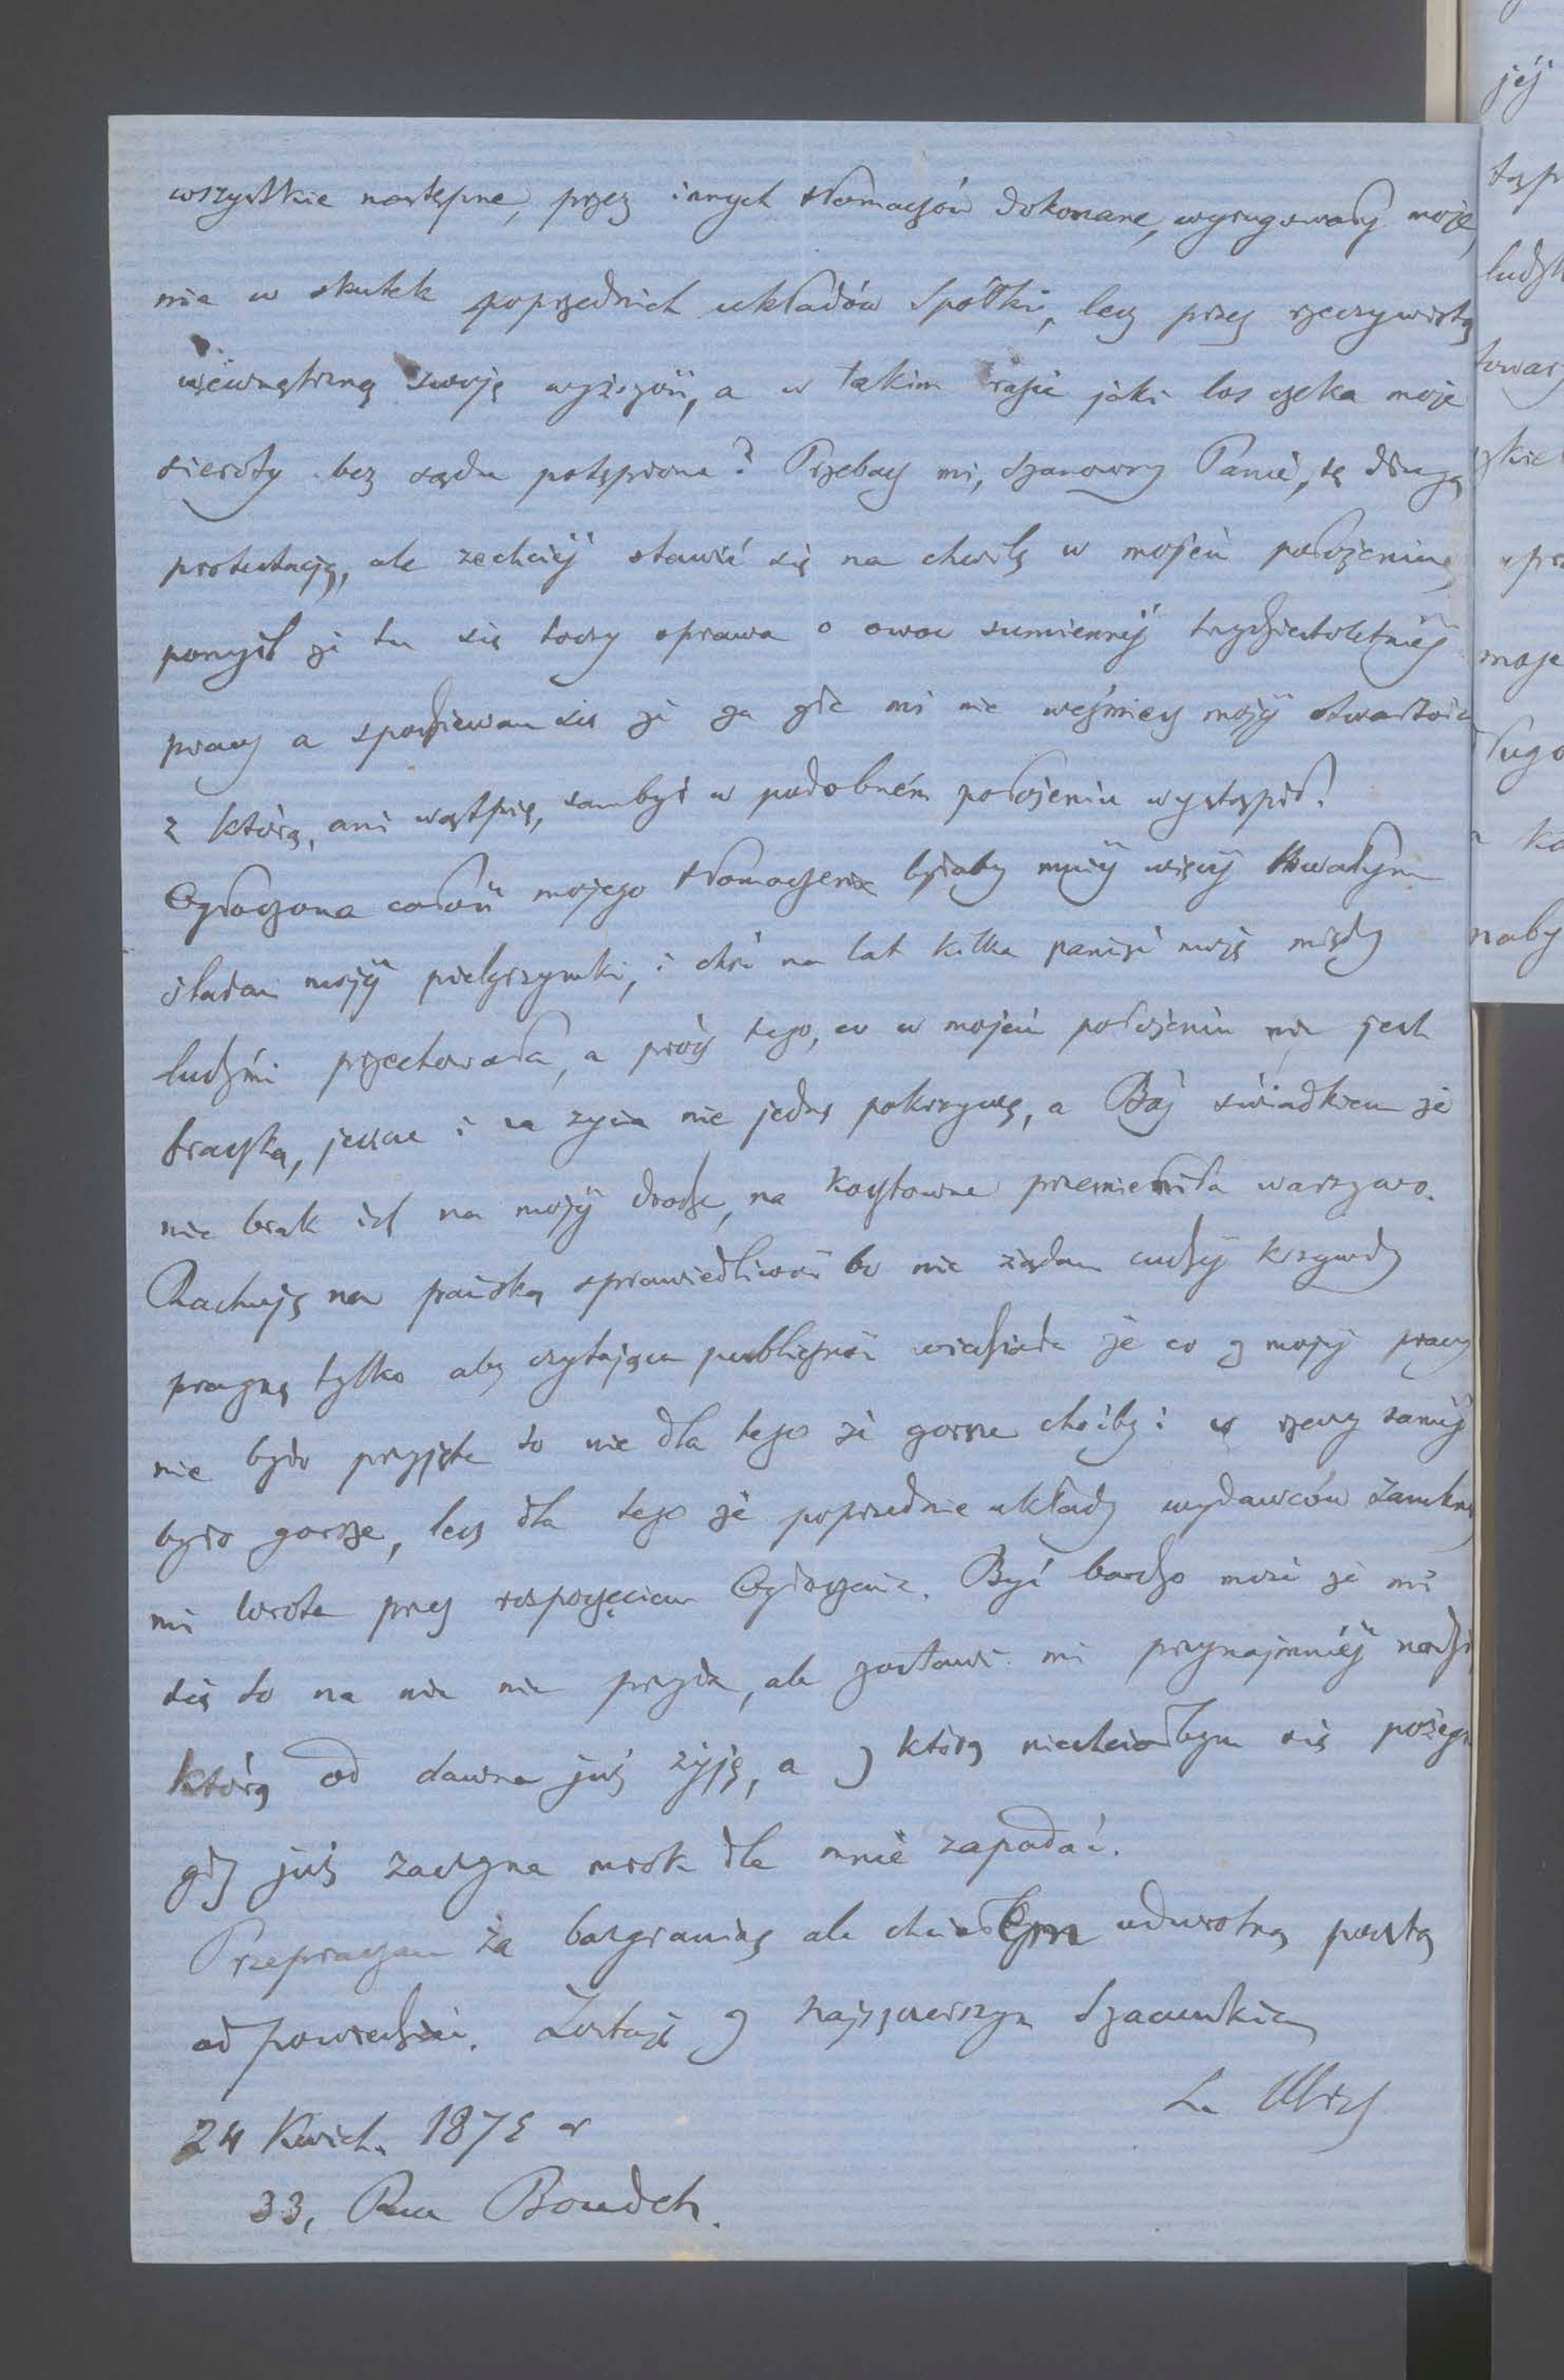 wszystkie następne, przez innych tłomaczów dokonane, wyrugowały moje,
nie w skutek poprzednich układów Spółki, lecz przez rzeczywistą
wewnętrzną swoję wyższość, a w takim razie jaki los czeka moje
sieroty bez sądu potępione? Przebacz mi, Szanowny Panie, tę długą
protestację, ale zechciej stawić się na chwilę w mojém położeniu,
pomyśl że tu się toczy sprawa o owoc sumiennéj trzydziestoletniéj
pracy a spodziewam się że za złe mi nie weźmiesz mojéj otwartości
z którą, ani wątpię, sambyś w podobném położeniu wystąpił.
Ogłoszona całość mojego tłomaczenia byłaby mniéj więcéj trwałym
śladem mojéj pielgrzymki, i choć na lat kilka pamięć moję między
ludźmi przechowała, a prócz tego, co w mojém położeniu nie jest
fraszką, jeszcze i za życia nie jednę pokrzywę, a Bóg świadkiem że
nie brak ich na mojéj drodze, na kosztowne przemieniła warzywo.
Rachuję na pańską sprawiedliwość bo nie żądam cudzéj krzywdy
pragnę tylko aby czytająca publiczność wiedziała że co z mojéj pracy
nie było przyjęte to nie dla tego że gorsze choćby i w rzeczy saméj
było gorsze, lecz dla tego że poprzednie układy wydawców zamknęły
mi wrota przed rozpoczęciem Ogłoszenia. Być bardzo może że mi
się to na nic nie przyda, ale zostawi mi przynajmniéj nadzieję
którą od dawna już żyję, a z którą niechciałbym się pożegnać
gdy już zaczyna mrok dla mnie zapadać.
Przepraszam za bazgraninę ale chciałem odwrotną pocztą
odpowiedzieć. Zostaję z najszczerszym Szacunkiem
L. Ulrich
24 Kwiet. 1875 r
33, Rue Boudet.
jéj
ludzk
towarz
moje
długo
naby